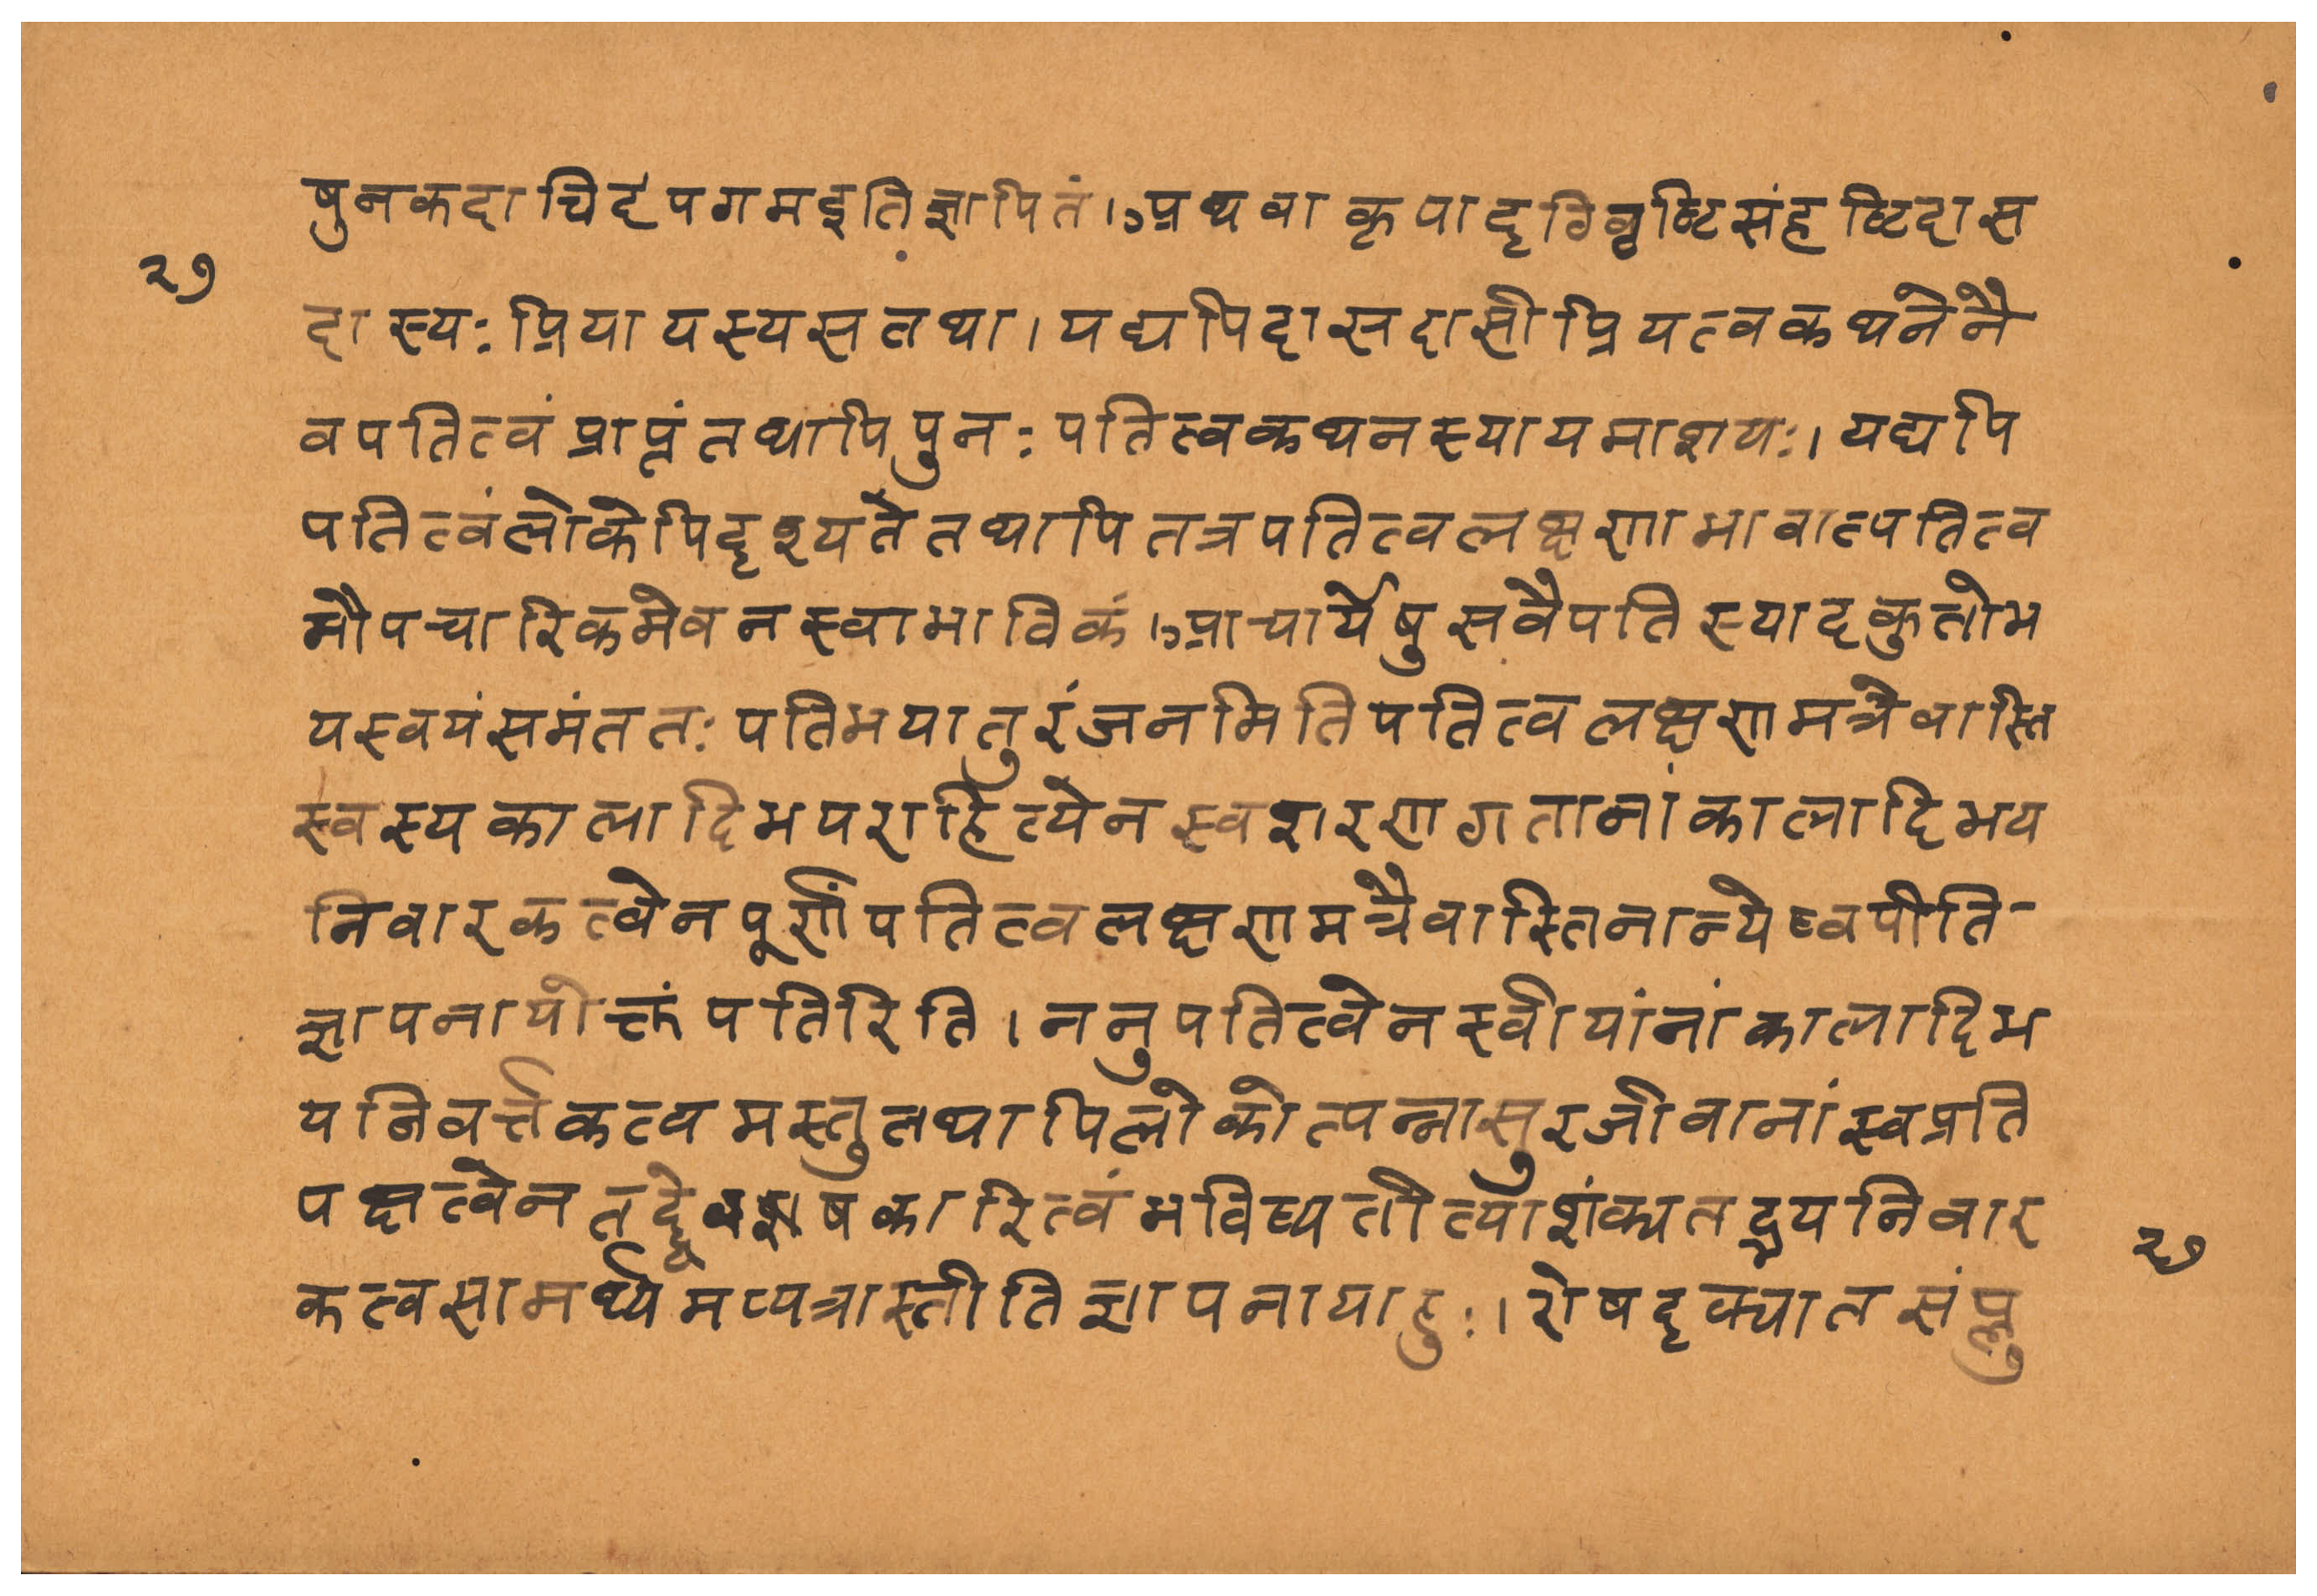 षुनकदाचिदपगमइतिज्ञापितं।अथवाकृपादृग्विवृष्टिसंहृष्टिदास
२७
दास्यःप्रियायस्यसतथा।यद्यपिदासदासीप्रियत्वकथनेनै
वपतित्वंप्राप्नंतथापिपुनःपतित्वकथनस्यायमाशयः।यद्यपि
पतित्वंलोकेपिदृश्यतेतथापितत्रपतित्वलक्षणाभावात्पतित्व
मौपचारिकमेवनस्वाभाविकं।आचार्येषुसवैपतिस्यादकुतोभ
यस्वयंसमंततःपतिभयातुरंजनमितिपतित्वलक्षणमत्रैवास्ति
स्वस्यकालादिभपराहित्येनस्वशरणागतानांकालादिभय
निवारकत्वेनपूर्णंपतित्वलक्षणमत्रैवास्तिनान्येष्वपीति-
ज्ञापनायोक्तंपतिरिति।ननुपतित्वेनस्वीयांनांकालादिभ
यनिवर्त्तकत्वमस्तुतथापिलोकोत्पन्नासुरजीवानांस्वप्रति
पक्षत्वेनतद्द्वेषकारित्वंभविष्यतीत्याशंक्यतद्भयनिवार
कत्वसामर्थ्यमप्यत्रास्तीतिज्ञापनायाहुः।रोषदृक्पातसंप्लु
२७